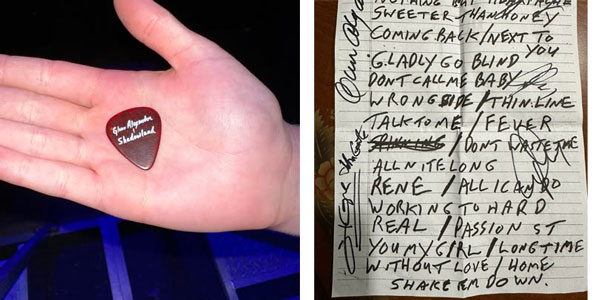 Glenn Alexander
&
Shadowland
NOTHING BUT HEARTACHE
SWEETER THAN HONEY
COMING BACK / NEXT TO
YOU
GLADLY GO BLIND
DONT CALL ME BABY
WRONG SIDE / THIN LINE
TALK TO ME / FEVER
/ DONT WASTE ME
ALL NITE LONG
RENE / ALL I CAN DO
WORKING TO HARD
REAL / PASSION ST
YOU MY GIRL / LONG TIME
WITHOUT LOVE / HOME
SHAKE EM DOWN.